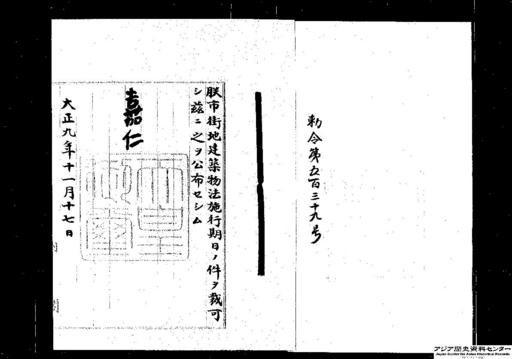 勅令第五百三十九号
朕市街地建築物法施行期日ノ件ヲ裁可
シ茲ニ之ヲ公布セシム
嘉仁
天皇御璽
大正九年十一月十七日
アジア歴史資料センター
Japan Center for Asian Historical Records